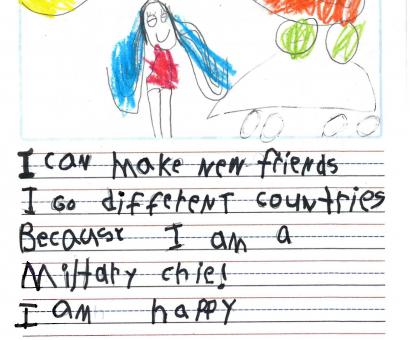 I can make new friends
I Go different countries
Because I am a
Military chiel
I am happy